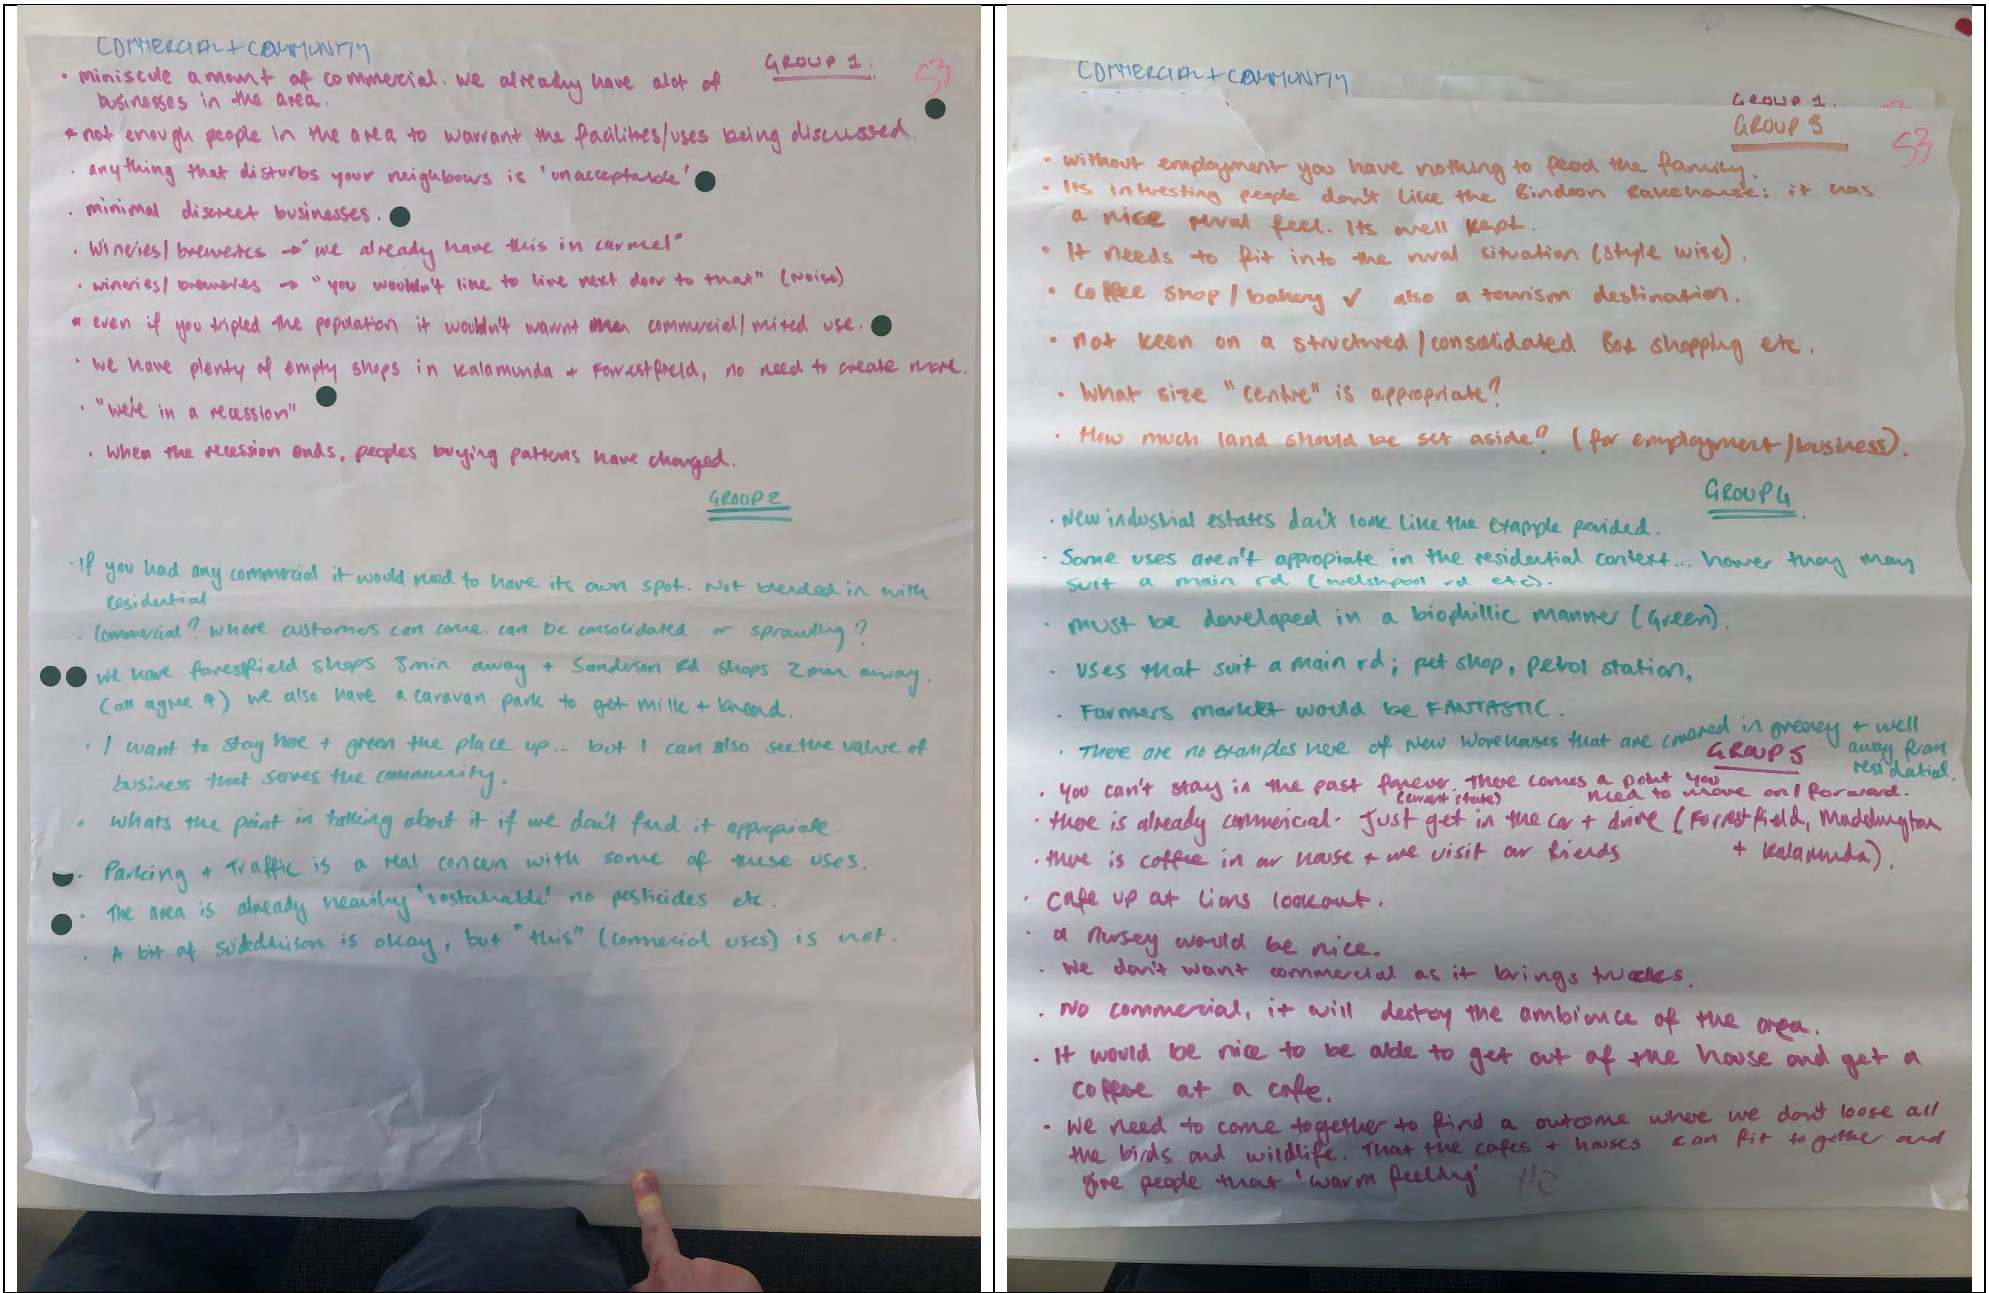 COMMERCIAL + COMMUNITY
GROUP 1.
S3
• miniscule amount of commercial. we already have alot of
businesses in the area.
* not enough people in the area to warrant the facilities/uses being discussed.
• anything that disturbs your neighbours is 'unacceptable'
• minimal discreet businesses.
• Wineries/breweries → "we already have this in carmel"
• wineries/breweries → "you wouldn't like to live next door to that" (Noise)
* even if you tripled the population it wouldn't warrnt commercial/mixed use.
• we have plenty of empty shops in Kalamunda + Forrestfield, no need to create more.
• "we're in a recession"
• when the recession ends, peoples buying patterns have changed.
GROUP 2
• If you had any commercial it would need to have its own spot. Not blended in with
residential
• Commercial? where customers can come. can be consolidated or sprawling?
we have forrestfield shops 3min away + Sanderson Rd shops 2min away.
(all agree 4) we also have a caravan park to get milk + bread.
• I want to stay here + green the place up... but I can also see the value of
business that serves the community.
• whats the point in talking about it if we don't find it appropiate.
• Parking + Traffic is a real concern with some of these uses.
• The area is already heavily 'sustainable' no pesticides etc.
• A bit of is okay, but "this" (commercial uses) is not.
COMMERCIAL + COMMUNITY
GROUP 1.
GROUP 3
S3
• without employment you have nothing to feed the family.
• Its interesting people don't like the Bindoon Bakehouse; it has
a nice rural feel. Its well kept.
• It needs to fit into the rural situation (style wise).
• coffee shop / bakery ✓ also a tourism destination.
• Not keen on a structured/consolidated Box shopping etc.
• What size "centre" is appropriate?
• How much land should be set aside? (for employment/business).
GROUP 4
• New industrial estates don't look like the example provided.
• Some uses aren't appropiate in the residential context... hower they may
suit a main rd (welshpool rd etc).
• must be developed in a biophillic manner (Green).
• uses that suit a main rd; pet shop, petrol station,
• Farmers market would be FANTASTIC.
• There are no examples here of New Warehouses that are covered in greney + well
away from
residential.
GROUP 5
• you can't stay in the past forever. There comes a point you
(current state) need to move on/forward.
• there is already commercial. Just get in the car + drive (Forrestfield, Maddington
+ Kalamunda).
• there is coffee in our house + we visit our friends
• cafe up at lions lookout.
• a nursey would be nice.
• we don't want commercial as it brings trucks.
• No commercial, it will destroy the ambience of the area.
• It would be nice to be able to get out of the house and get a
coffee at a cafe.
• we need to come together to find a outcome where we don't loose all
the birds and wildlife. That the cafes + houses can fit together and
give people that 'warm feeling'